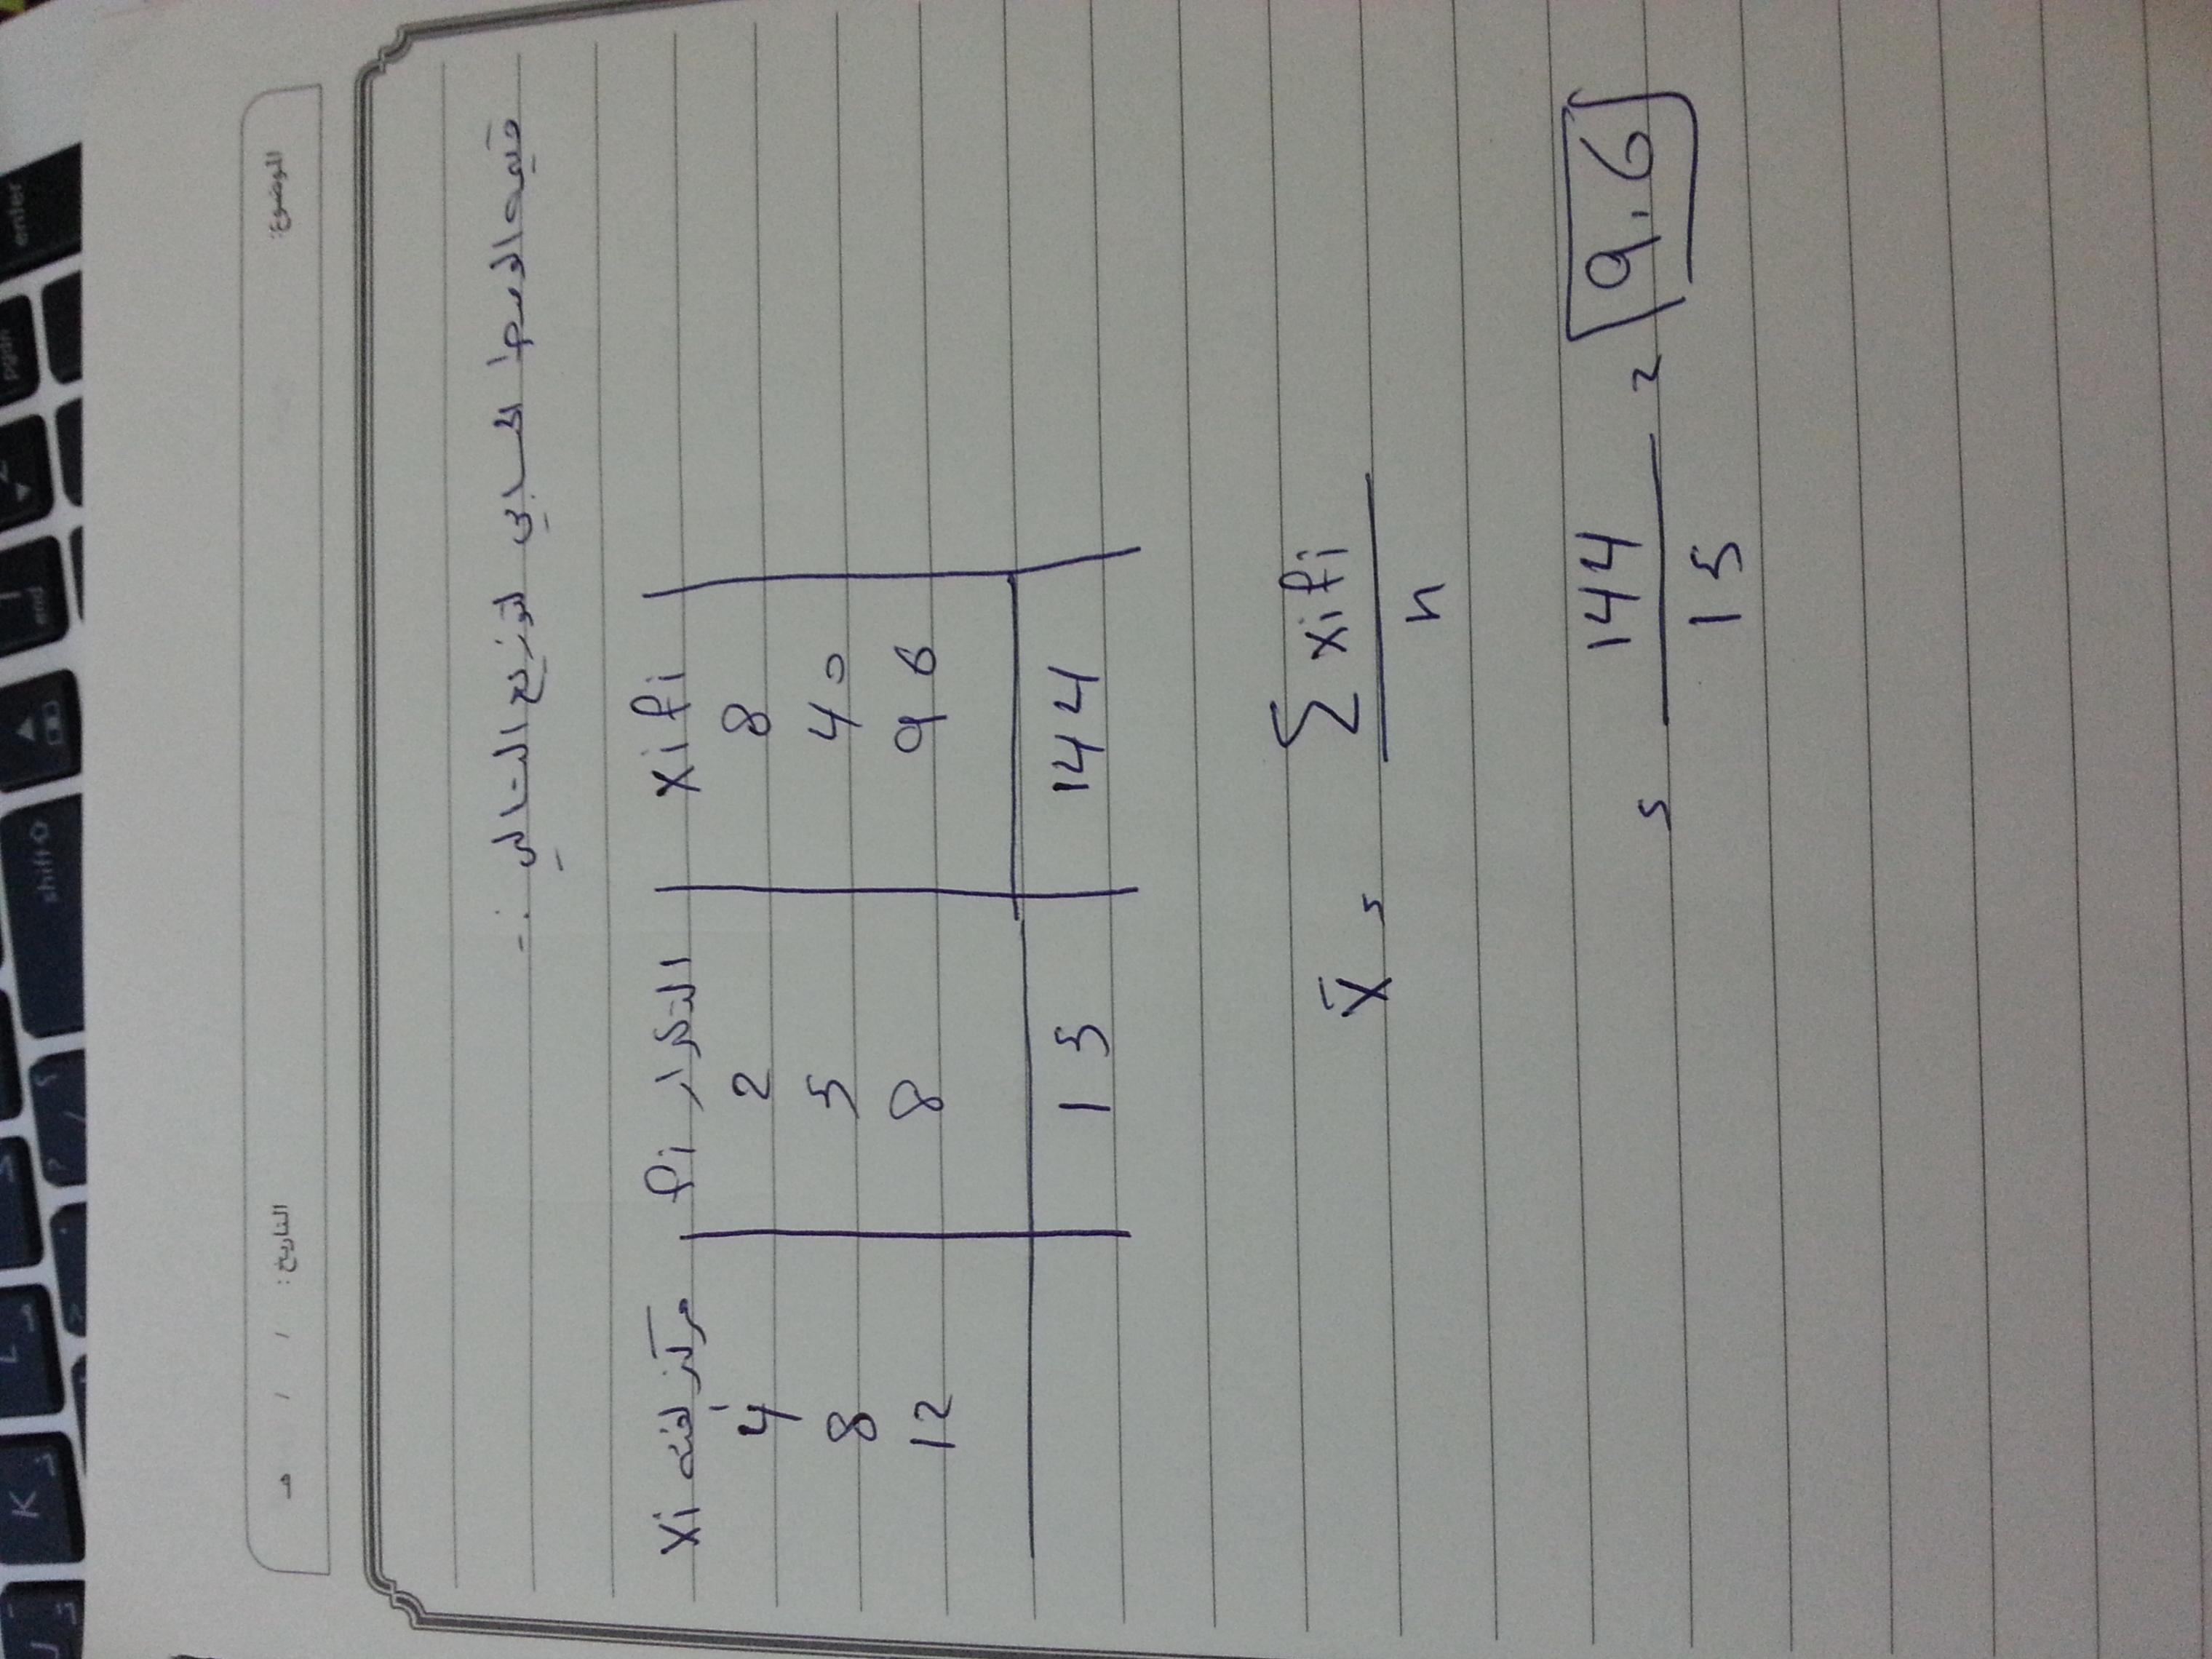 الموضوع:
التاريخ: / / هـ
قيمه الوسط الحسابي لتوزيع التالي :-
Xi مركز لفئه
fi التكرار
xifi
4 2 8
8 5 40
12 8 96
15 144
x̄ = Σ xifi / n
= 144 / 15 = 9.6
enter
pgdn
end
shift
K
L